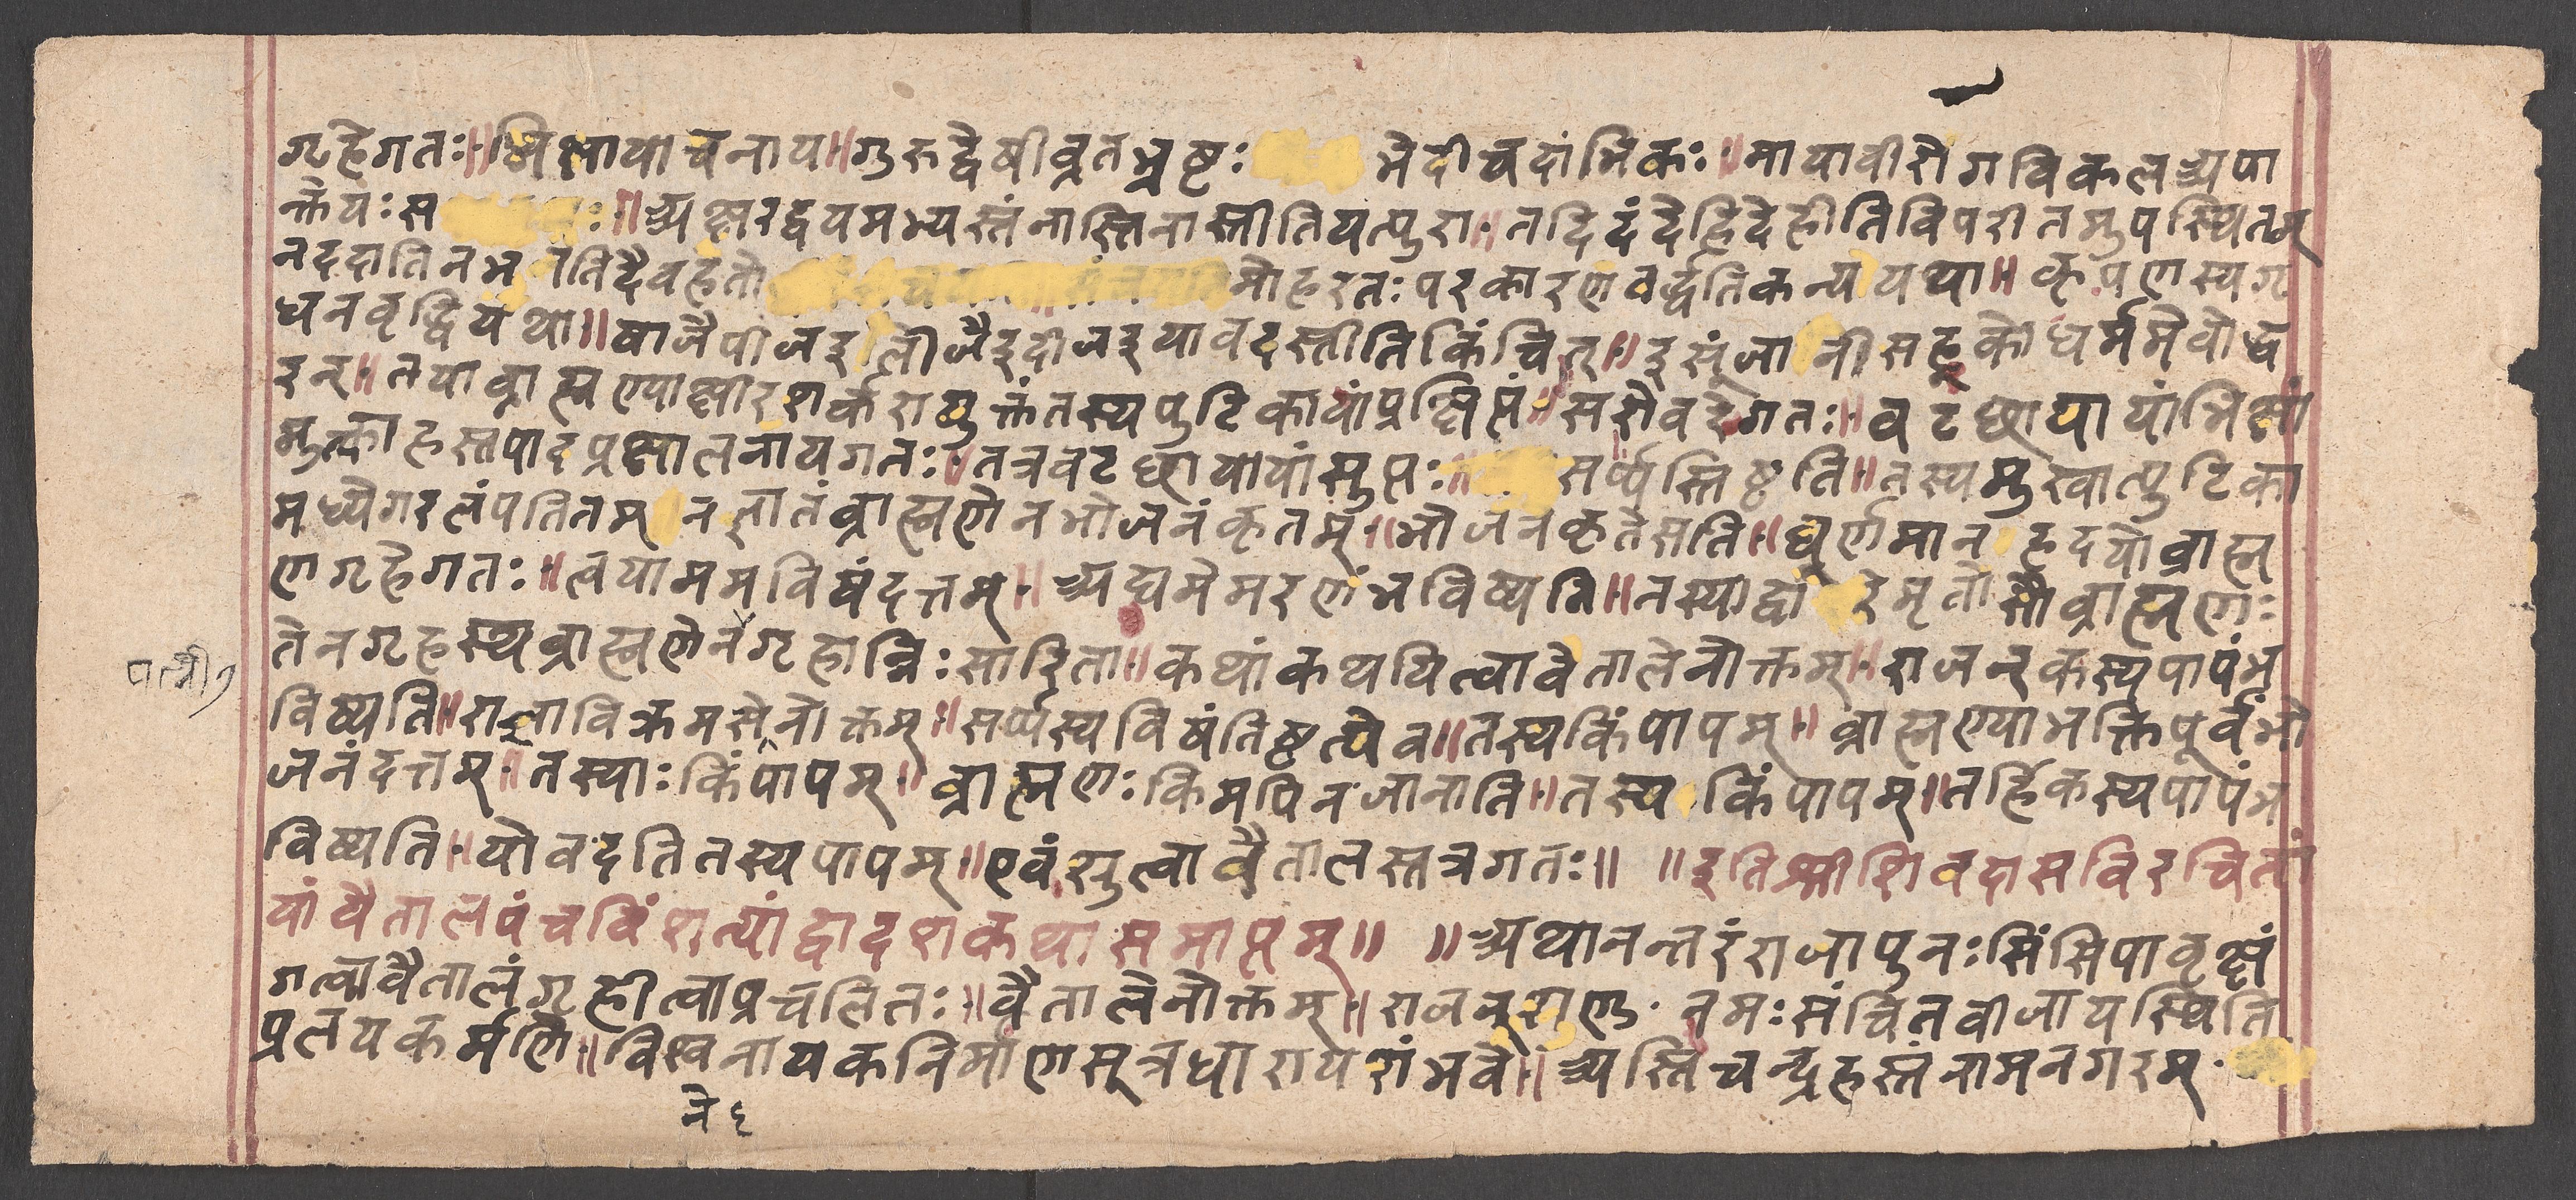 गृहेगतः॥भिक्षायाचनाय॥गुरुद्वेषीव्रतभ्रष्टः भेदीचदांभिकः॥मायावीरोगविकलअपा
क्तेयःस ॥अक्षरद्वयमभ्यस्तंनास्तिनास्तीतियत्पुरा॥तदिदंदेहिदेहीतिविपरीतमुपस्थितम्
नददातिनभ तिदैवहतो मोहरतःपरकारणेवर्द्धतिकन्य यथा॥कृपणस्यगृ
धनवृद्धिर्यथा॥षाजैपीजइ लीजैइदीजइयावदस्तीतिकिंचित्॥इसूंजा नीसहूकोधर्ममेवोद्ध
रन्॥तयाव्राह्मण्याक्षीरशर्करायुक्तंतस्यपुटिकायांप्रक्षिप्तं॥सरोवरेगतः॥वटछायायांभिक्षां
मुत्काहस्तपादप्रक्षालनायगतः॥तत्रवटछायायांसुप्तः॥ सर्प्पस्तिष्ठति॥तस्यमुखात्पुटिका
मध्येगरलंपतितम् नज्ञातंव्राह्मणेनभोजनंकृतम्॥भोजनकृतेसति॥घूर्णमान हृदयोव्राह्म
णगृहेगतः॥त्वयाममविषंदत्तम्॥अद्यमेमरणंभविष्यति॥तस्याद्वा रेमृतोसौव्राह्मणः
तेनगृहस्थव्राह्मणेनगृहान्निःसारिता॥कथांकथयित्वावैतालेनोक्तम्॥राजन्कस्यपापंभ
पत्नी१
विष्यति॥राज्ञाविक्रमसेनोक्तम्॥सर्प्पस्यविषंतिष्ठत्येव॥तस्यकिंपापम्॥व्राह्मण्याभक्तिपूर्वंभो
जनंदत्तम्॥तस्याःकिंपापम्॥व्राह्मणःकिमपिनजानाति॥तस्य किंपापम्॥तर्हिकस्यपापंभ
विष्यति॥योवदतितस्यपापम्॥एवंस्रुत्वावैतालस्तत्रगतः॥ ॥इतिश्रीशिवदासविरचिता
यांवैतालपंचविंशत्यांद्वादशकथासमाप्तम्॥ ॥अथानन्तरंराजापुनःसिंसिपावृक्षं
गत्वावैतालंगृहीत्वाप्रचलितः॥वैतालेनोक्तम्॥राजन्शृणु॰नमःसंचितवीजायस्थिति
प्रलयकर्मणे॥विश्वनायकनिर्माणसूत्रधारायशंभवे॥अस्तिचन्द्रहस्तंनामनगरम्॰
ने६